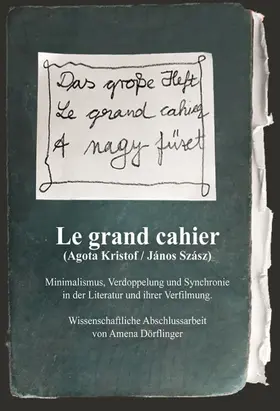 Das große Heft
Le grand cahier
A nagy füzet
Le grand cahier
(Agota Kristof / János Szász)
Minimalismus, Verdoppelung und Synchronie
in der Literatur und ihrer Verfilmung.
Wissenschaftliche Abschlussarbeit
von Amena Dörflinger